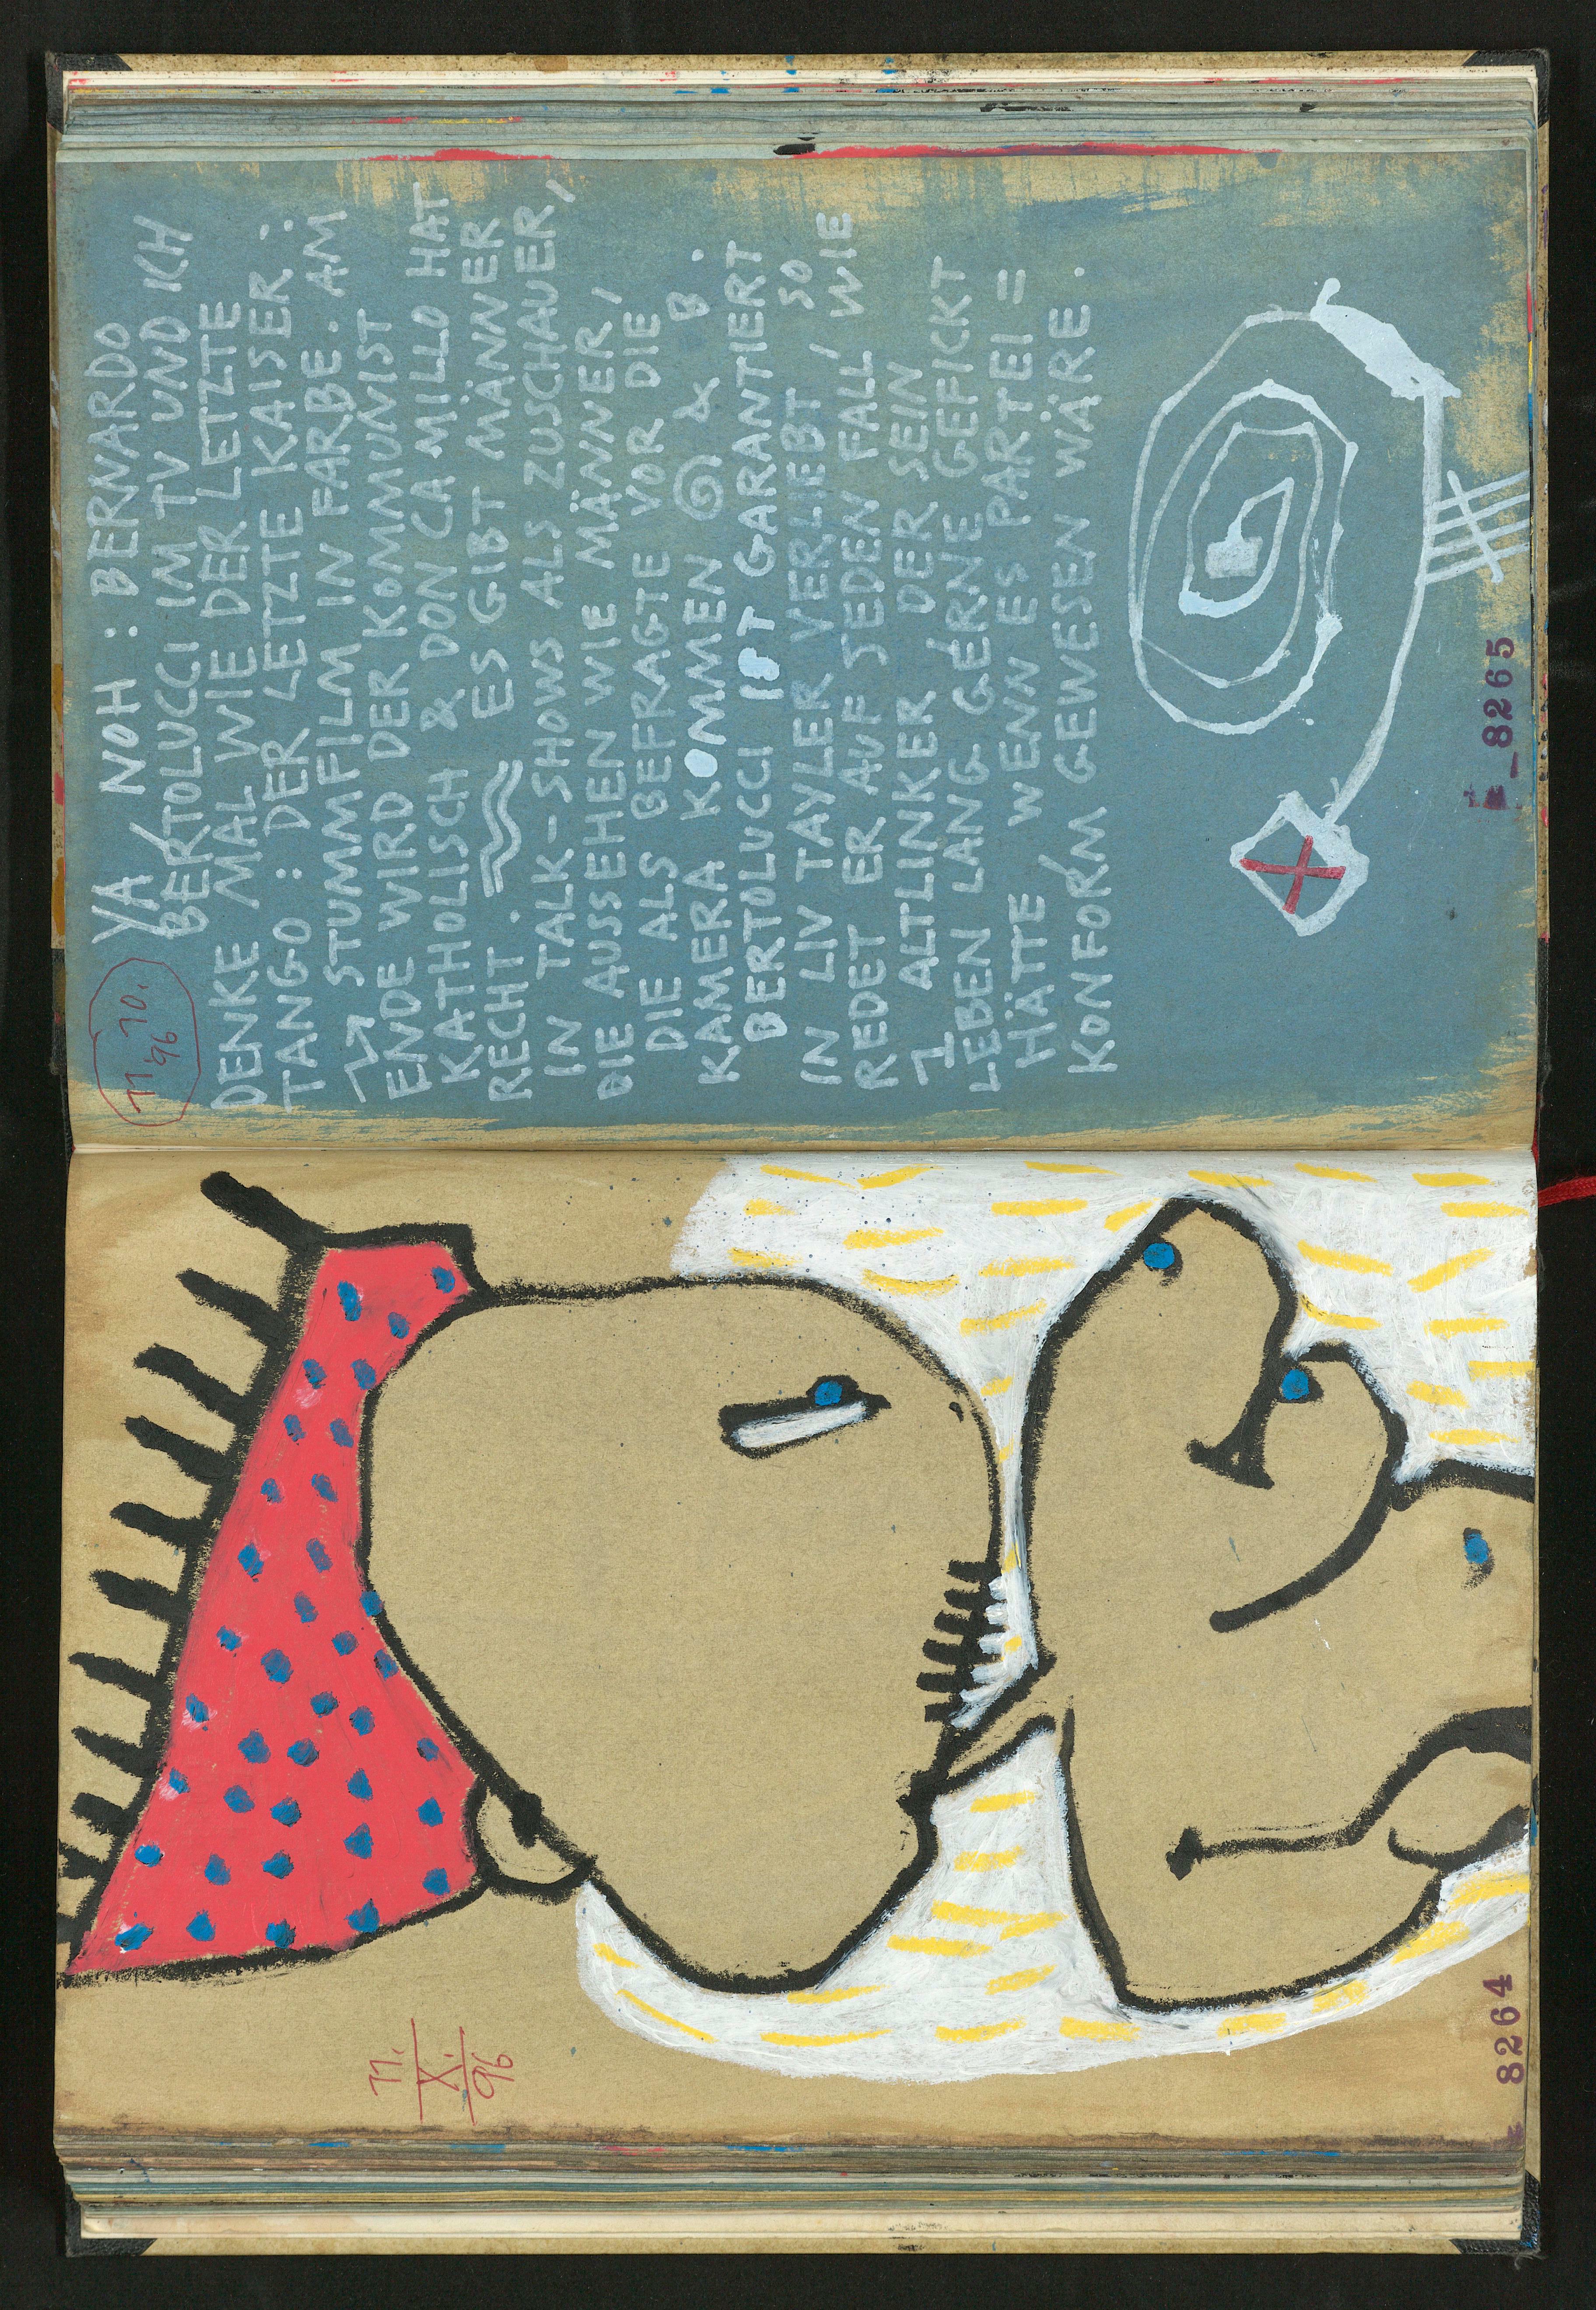 11.
X.
96
8264
11.10.
96
YA NOH : BERNARDO
BERTOLUCCI IM TV UND ICH
DENKE MAL WIE DER LETZTE
TANGO : DER LETZTE KAISER :
STUMMFILM IN FARBE. AM
ENDE WIRD DER KOMMUNIST
KATHOLISCH & DON CAMILLO HAT
RECHT. ES GIBT MÄNNER
IN TALK-SHOWS ALS ZUSCHAUER,
DIE AUSSEHEN WIE MÄNNER,
DIE ALS BEFRAGTE VOR DIE
KAMERA KOMMEN & B.
BERTOLUCCI IST GARANTIERT
IN LIV TAYLER VERLIEBT, SO
REDET ER AUF JEDEN FALL, WIE
1 ALTLINKER DER SEIN
LEBEN LANG GERNE GEFICKT
HÄTTE WENN ES PARTEI=
KONFORM GEWESEN WÄRE.
8265